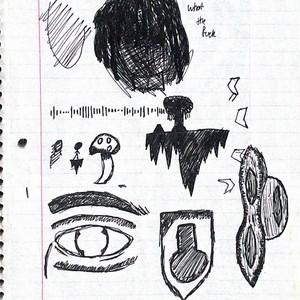 what
the
fuck